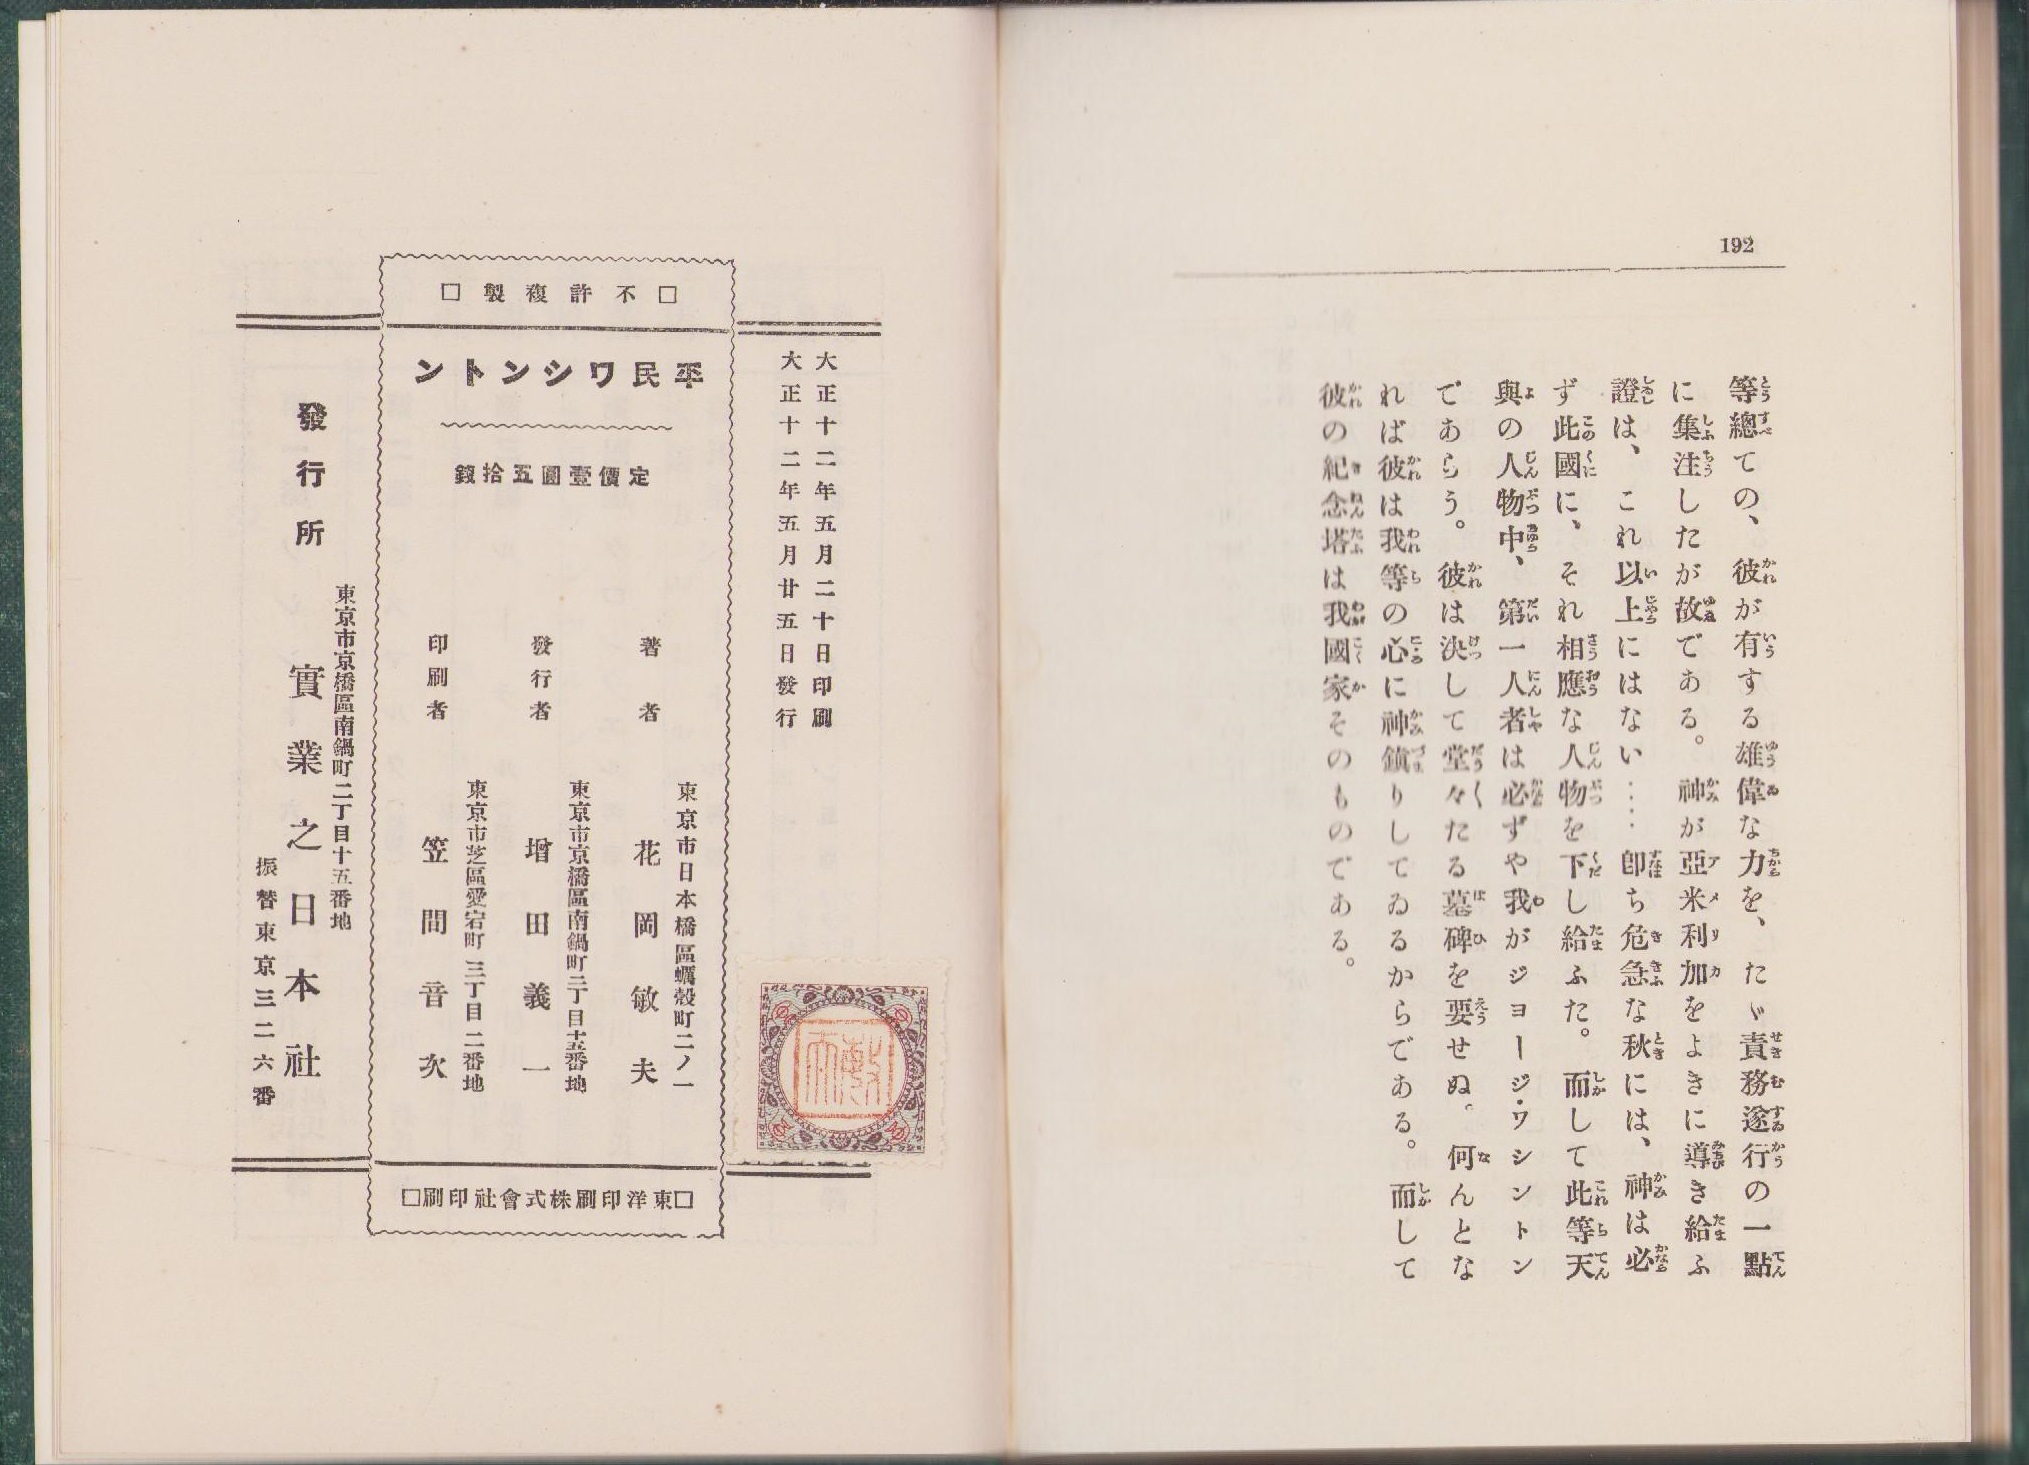 192
等總ての、彼が有する雄偉な力を、たゞ責務遂行の一點
に集注したが故である。神が亞米利加をよきに導き給ふ
證は、これ以上にはない……卽ち危急な秋には、神は必
ず此國に、それ相應な人物を下し給ふた。而して此等天
與の人物中、第一人者は必ずや我がジョージ・ワシントン
であらう。彼は決して堂々たる墓碑を要せぬ。何んとな
れば彼は我等の心に神鎭りしてゐるからである。而して
彼の紀念塔は我國家そのものである。
大正十二年五月二十日印刷
大正十二年五月廿五日發行
□不許複製□
平民ワシントン
定價壹圓五拾錢
著者
東京市日本橋區蠣殼町二ノ一
花岡敏夫
發行者
東京市京橋區南鍋町二丁目十五番地
增田義一
印刷者
東京市芝區愛宕町三丁目二番地
笠間音次
□東洋印刷株式會社印刷□
發行所
東京市京橋區南鍋町二丁目十五番地
實業之日本社
振替東京三二六番